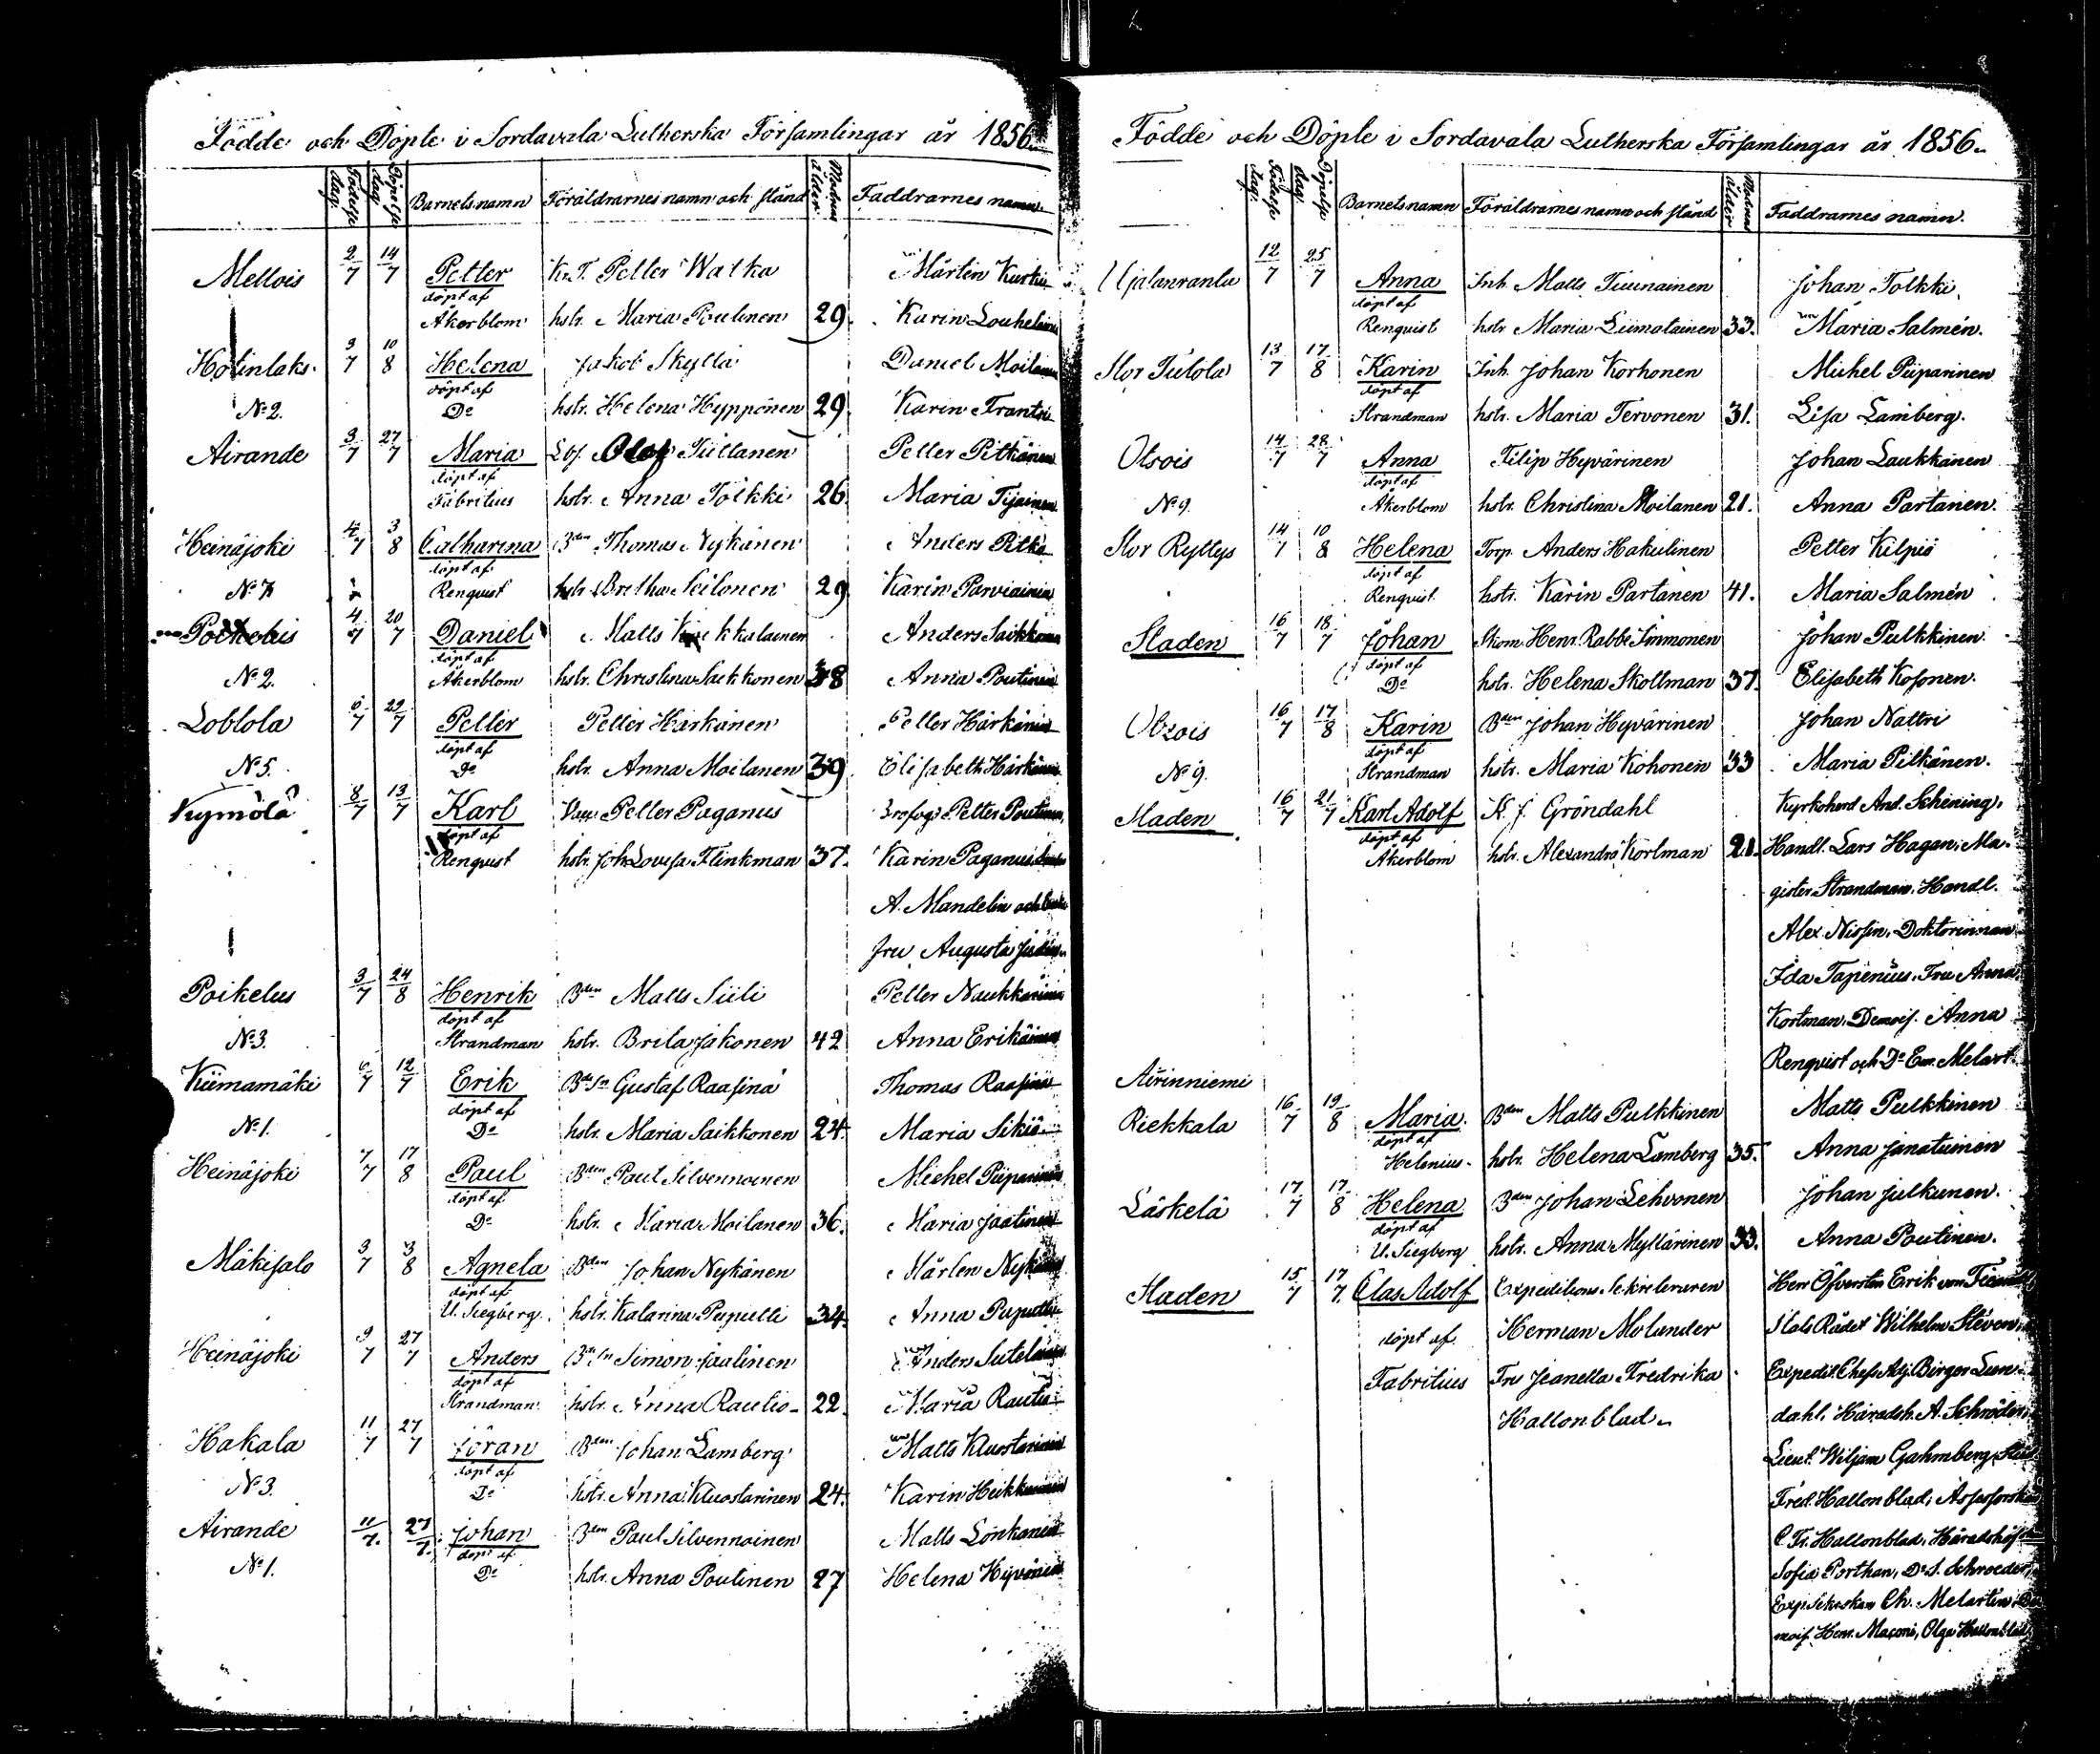 Födde och Döpte i Sordavala Lutherska Församlingar år 1856.
Födelse dag. Döpelse dag. Barnets namn Föräldrarnes namn och stånd Modrens ålder Faddrarnes namn.
Mellois 2/7 14/7 Petter Petter Watka Mårten
döpt af
Åkerblom hstr. Maria Poutinen 29. Karin
Hotinlaks. 3/7 10/8 Helena Jakob Skyttä Daniel Moilanen
döpt af
No 2. Do hstr. Helena Hyppönen 29. Karin
Airande 3/7 27/7 Maria Olof Tiittanen Petter Pitkänen
döpt af
Fabritius hstr. Anna Tolkki 26. Maria
Heinäjoki 4/7 3/8 Catharina Bden Thomas Nykänen Anders
döpt af
No 7 Renqvist hstr. Bretha Seilonen 29 Karin
4/7 20/7 Daniel Matts Anders
döpt af
No 2. Åkerblom hstr. Christina Saikkonen 38 Anna Poutinen
Loblola 6/7 29/7 Petter Petter Härkänen Petter Härkänen
döpt af
No 5. Do hstr. Anna Moilanen 39 Elisabeth Härkänen
Kymölä 8/7 13/7 Karl Petter Paganus Petter Poutinen,
döpt af
Renqvist hstr. Joh. Lovisa Flinkman 37. Karin Paganus
A. Mandelin och
Fru Augusta
Poikelus 3/7 24/8 Henrik Bden Matts Siili Petter Naukkarinen
döpt af
No 3. Strandman hstr. Brita Jakonen 42 Anna Erikäinen
Kiimamäki 6/7 12/7 Erik Gustaf Raasina Thomas Raasina
döpt af
No 1. Do hstr. Maria Saikkonen 24. Maria Sikiö
Heinäjoki 7/7 17/8 Paul Bden Paul Silvennoinen Michel Piiparinen
döpt af
Do hstr. Maria Moilanen 36. Maria Jaatinen
Mäkisalo 3/7 3/8 Agneta Bden Johan Nykänen Mårten Nykänen
döpt af
U. Siegberg. hstr. Katarina Puputti 34. Anna Puputti
Heinäjoki 9/7 27/7 Anders Simon Jaatinen Anders
döpt af
Strandman. hstr. Anna Rautio 22. Maria Rautio
Hakala 11/7 27/7 Göran Bden Johan Lamberg Matts Kluostarinen
döpt af
No 3. Do hstr. Anna Kluostarinen 24. Karin
Airande 11/7. 27/7. Johan Bden Paul Silvennoinen Matts Lonkanen
döpt af
No 1. Do hstr. Anna Poutinen 27 Helena Hyvönen
Födde och Döpte i Sordavala Lutherska Församlingar år 1856.
Födelse dag. Döpelse dag. Barnets namn Föräldrarnes namn och stånd Modrens ålder Faddrarnes namn.
12/7 25/7 Anna Inh. Matts Tiunainen Johan Tolkki.
döpt af
Renqvist hstr. Maria Liimatainen 33. Maria Salmén.
Stor Tulola 13/7 17/8 Karin Inh. Johan Korhonen Michel Piiparinen
döpt af
Strandman hstr. Maria Tervonen 31. Lisa Lamberg.
Otsois 14/7 28/7 Anna Filip Hyvärinen Johan Laukkanen
döpt af
No 9. Åkerblom hstr. Christina Moilanen 21. Anna Partanen.
Stor Ryttys 14/7 10/8 Helena Torp. Anders Hakulinen Petter Kilpiö
döpt af
Renqvist. hstr. Karin Partanen 41. Maria Salmén
Staden 16/7 18/7 Johan Skom. Henr. Rabbe Simmonen Johan Pulkkinen.
döpt af
Do hstr. Helena Skottman 37. Elisabeth Kosonen.
Otsois 16/7 17/8 Karin Bden Johan Hyvärinen Johan Nattri
döpt af
No 9. Strandman hstr. Maria Kohonen 33 Maria Pitkänen.
Staden 16/7 21/7 Karl Adolf K. J. Gröndahl Kyrkoherd And. Schening,
döpt af
Åkerblom hstr. Alexandra Kortman 21. Handl. Lars Hagan, Ma-
gister Strandman, Handl.
Alex. Nissin, Doktorinnan
Ida Tapenius, Fru Anna
Kortman, Demois. Anna
Renqvist och Do Em. Melart.
Airinniemi
Riekkala 16/7 19/8 Maria. Bden Matts Pulkkinen Matts Pulkkinen
döpt af
Helenius. hstr. Helena Lamberg 35. Anna Janatuinen
Läskelä 17/7 17/8 Helena Bden Johan Lehvonen Johan Julkunen.
döpt af
U. Siegberg hstr. Anna Myllärinen 33. Anna Poutinen.
Staden 15/7 17/7. Clas Adolf Expeditions Sekreteraren Herr Öfversten Erik von
döpt af Herman Molander Stats Rådet Wilhelm Stéven,
Fabritius Fru Jeanetta Fredrika Expedit. Chefs Adj. Birger Lun-
Hallonblad. dahl, Häradsh. A. Schröder,
Lieut. Wiljam Gahmberg,
Fred. Hallonblad,
C. Fr. Hallonblad,
Sofia Porthan, Do S. Schroeder,
Ch. Melartin,
mois. Henr. Maconi, Olga Hallonblad.